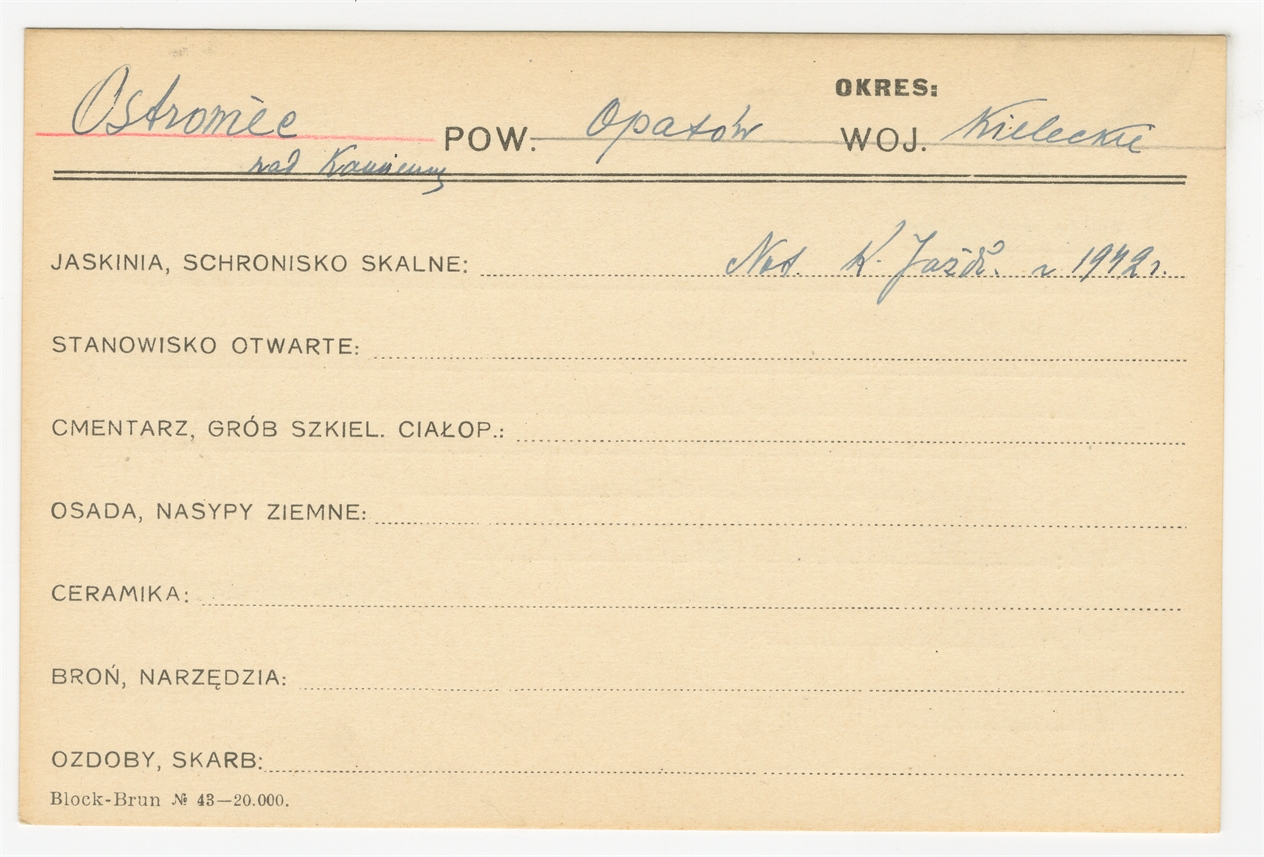 OKRES:
Ostrowiec POW. Opatów WOJ. Kieleckie
nad Kamienną
JASKINIA, SCHRONISKO SKALNE: Not. K. Jażdż. z 1942 r.
STANOWISKO OTWARTE:
CMENTARZ, GRÓB SZKIEL. CIAŁOP.:
OSADA, NASYPY ZIEMNE:
CERAMIKA:
BROŃ, NARZĘDZIA:
OZDOBY, SKARB:
Block-Brun № 43—20.000.